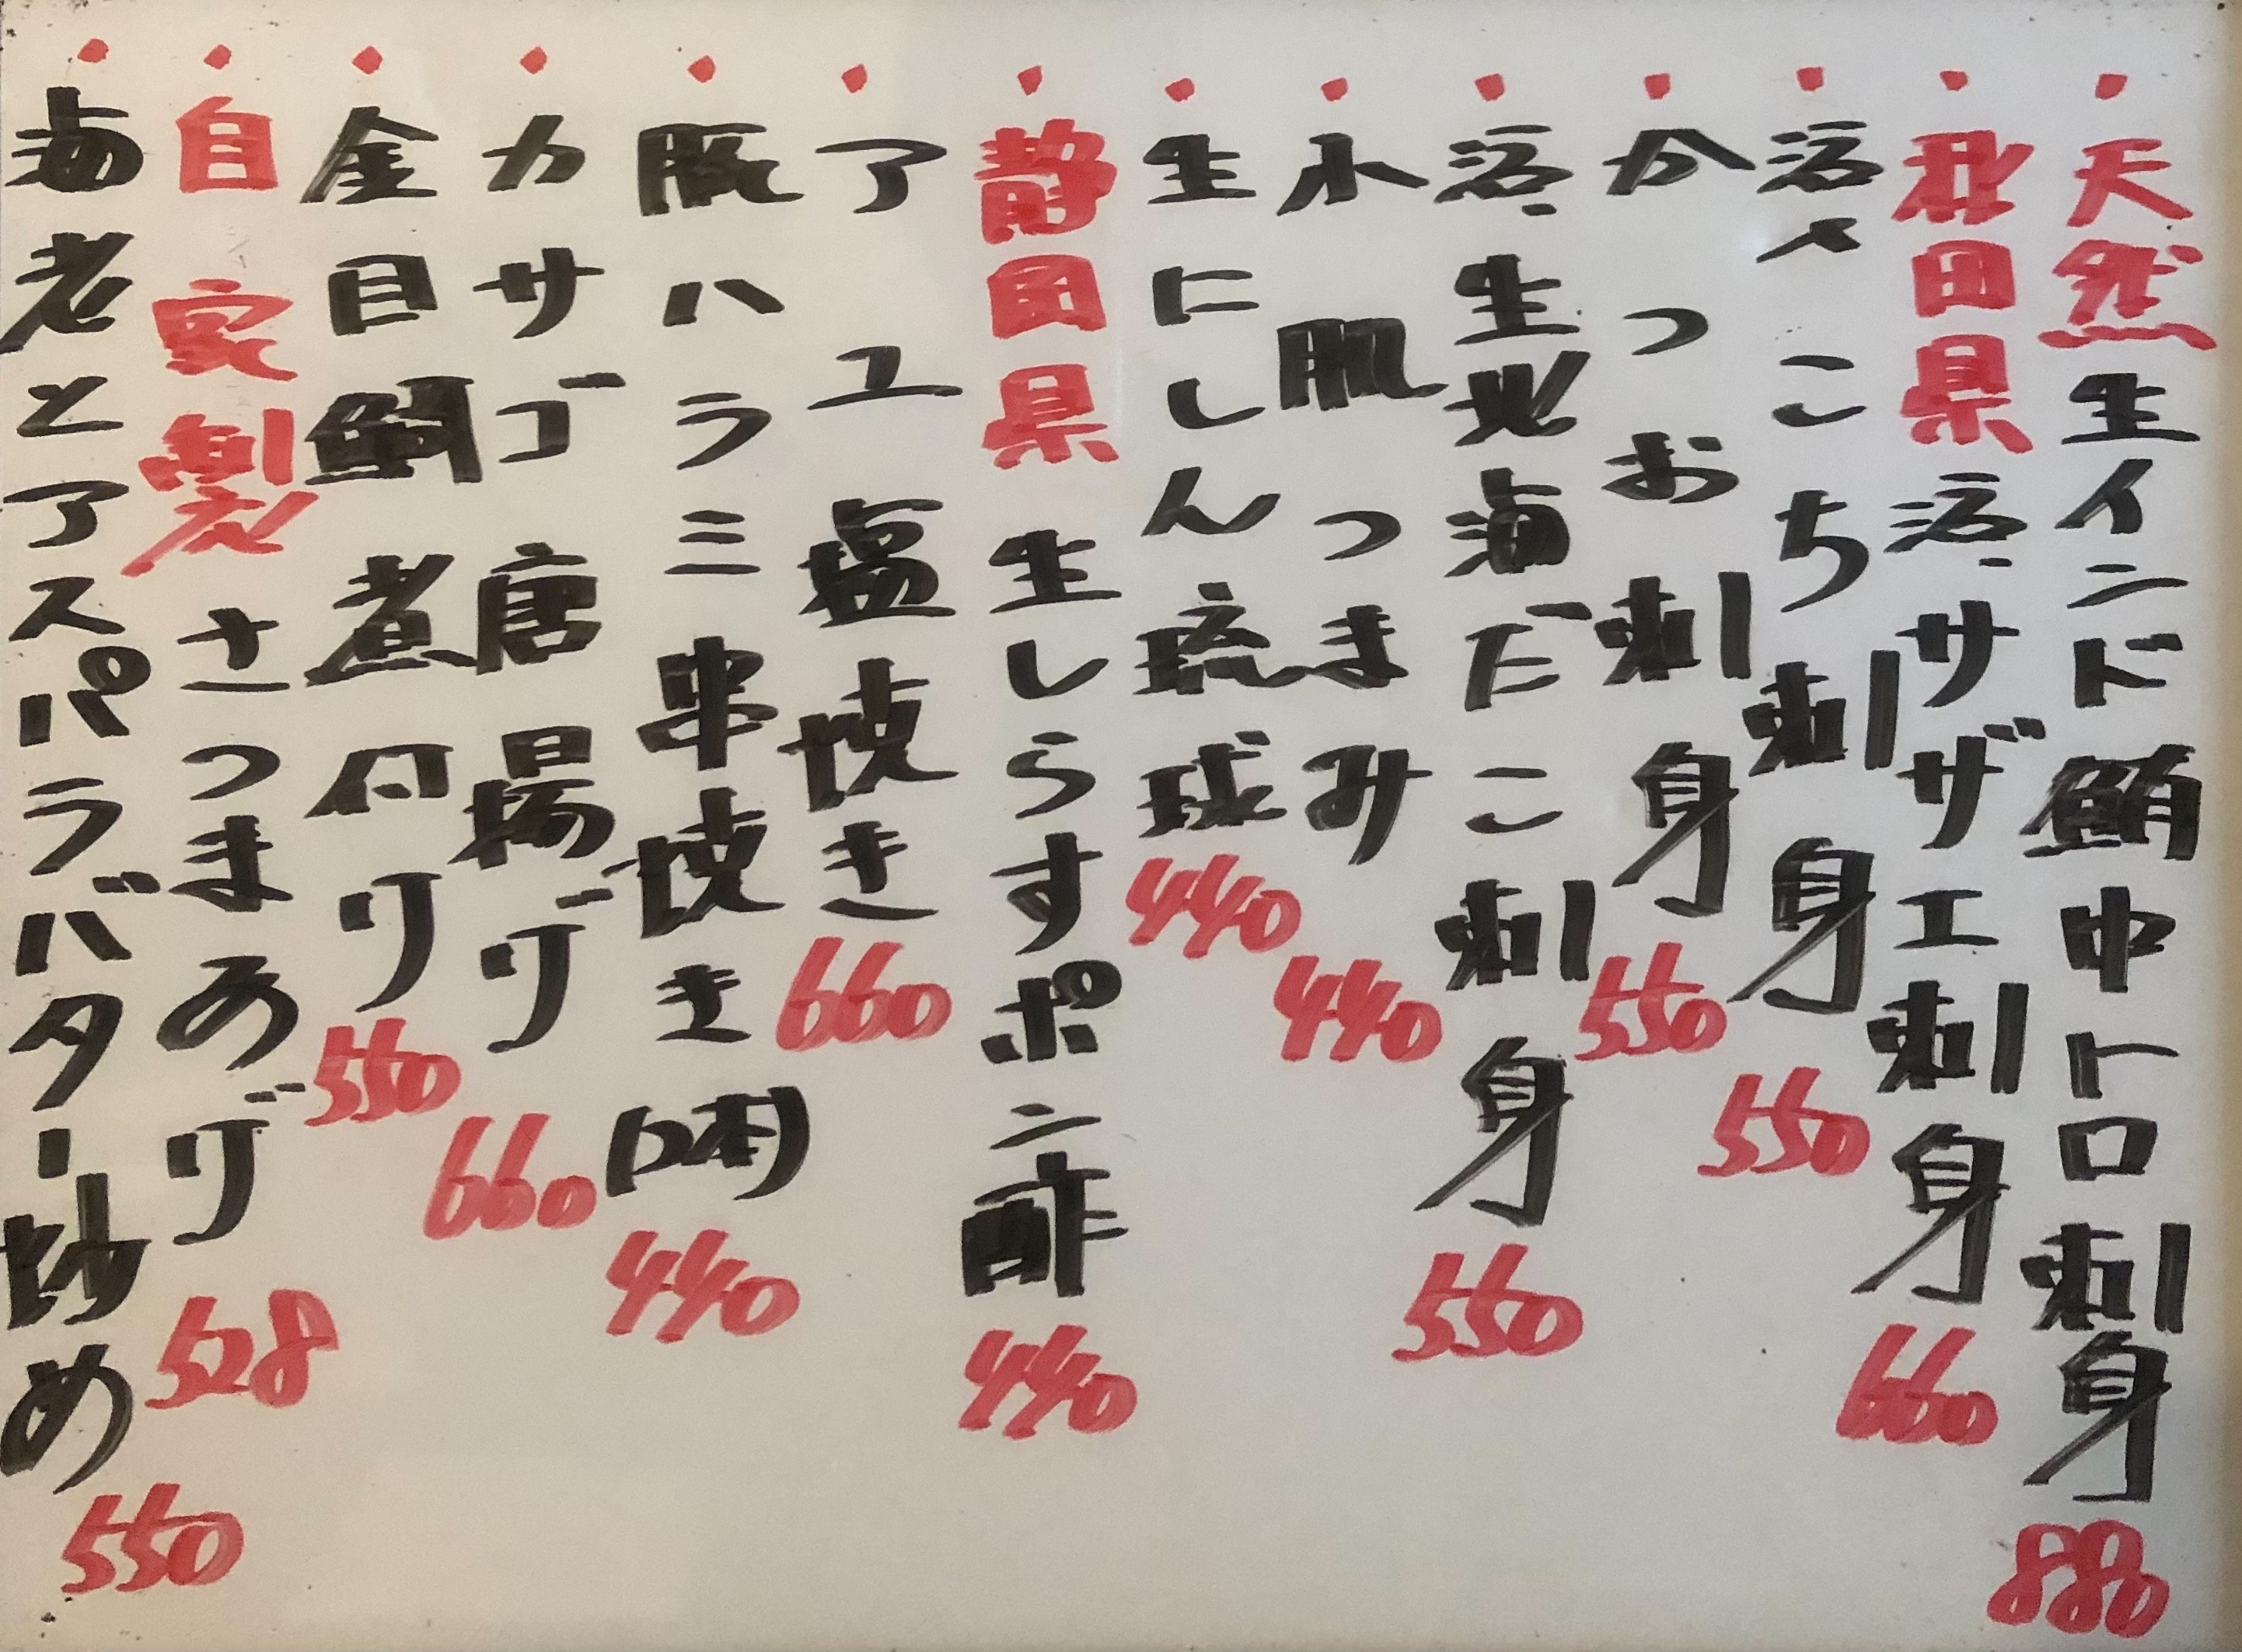 ・天然生インド鮪中トロ刺身 880
・秋田県活サザエ刺身 660
・活〆こち刺身 550
・かつお刺身 550
・活生北海だこ刺身 550
・氷肌つまみ 440
・生にしん琉球 440
・静岡県生しらすポン酢 440
・アユ塩焼き 660
・豚ハラミ串焼き(2本) 440
・カサゴ唐揚げ 660
・金目鯛煮付け 550
・自家製さつまあげ 528
・海老とアスパラバター炒め 550